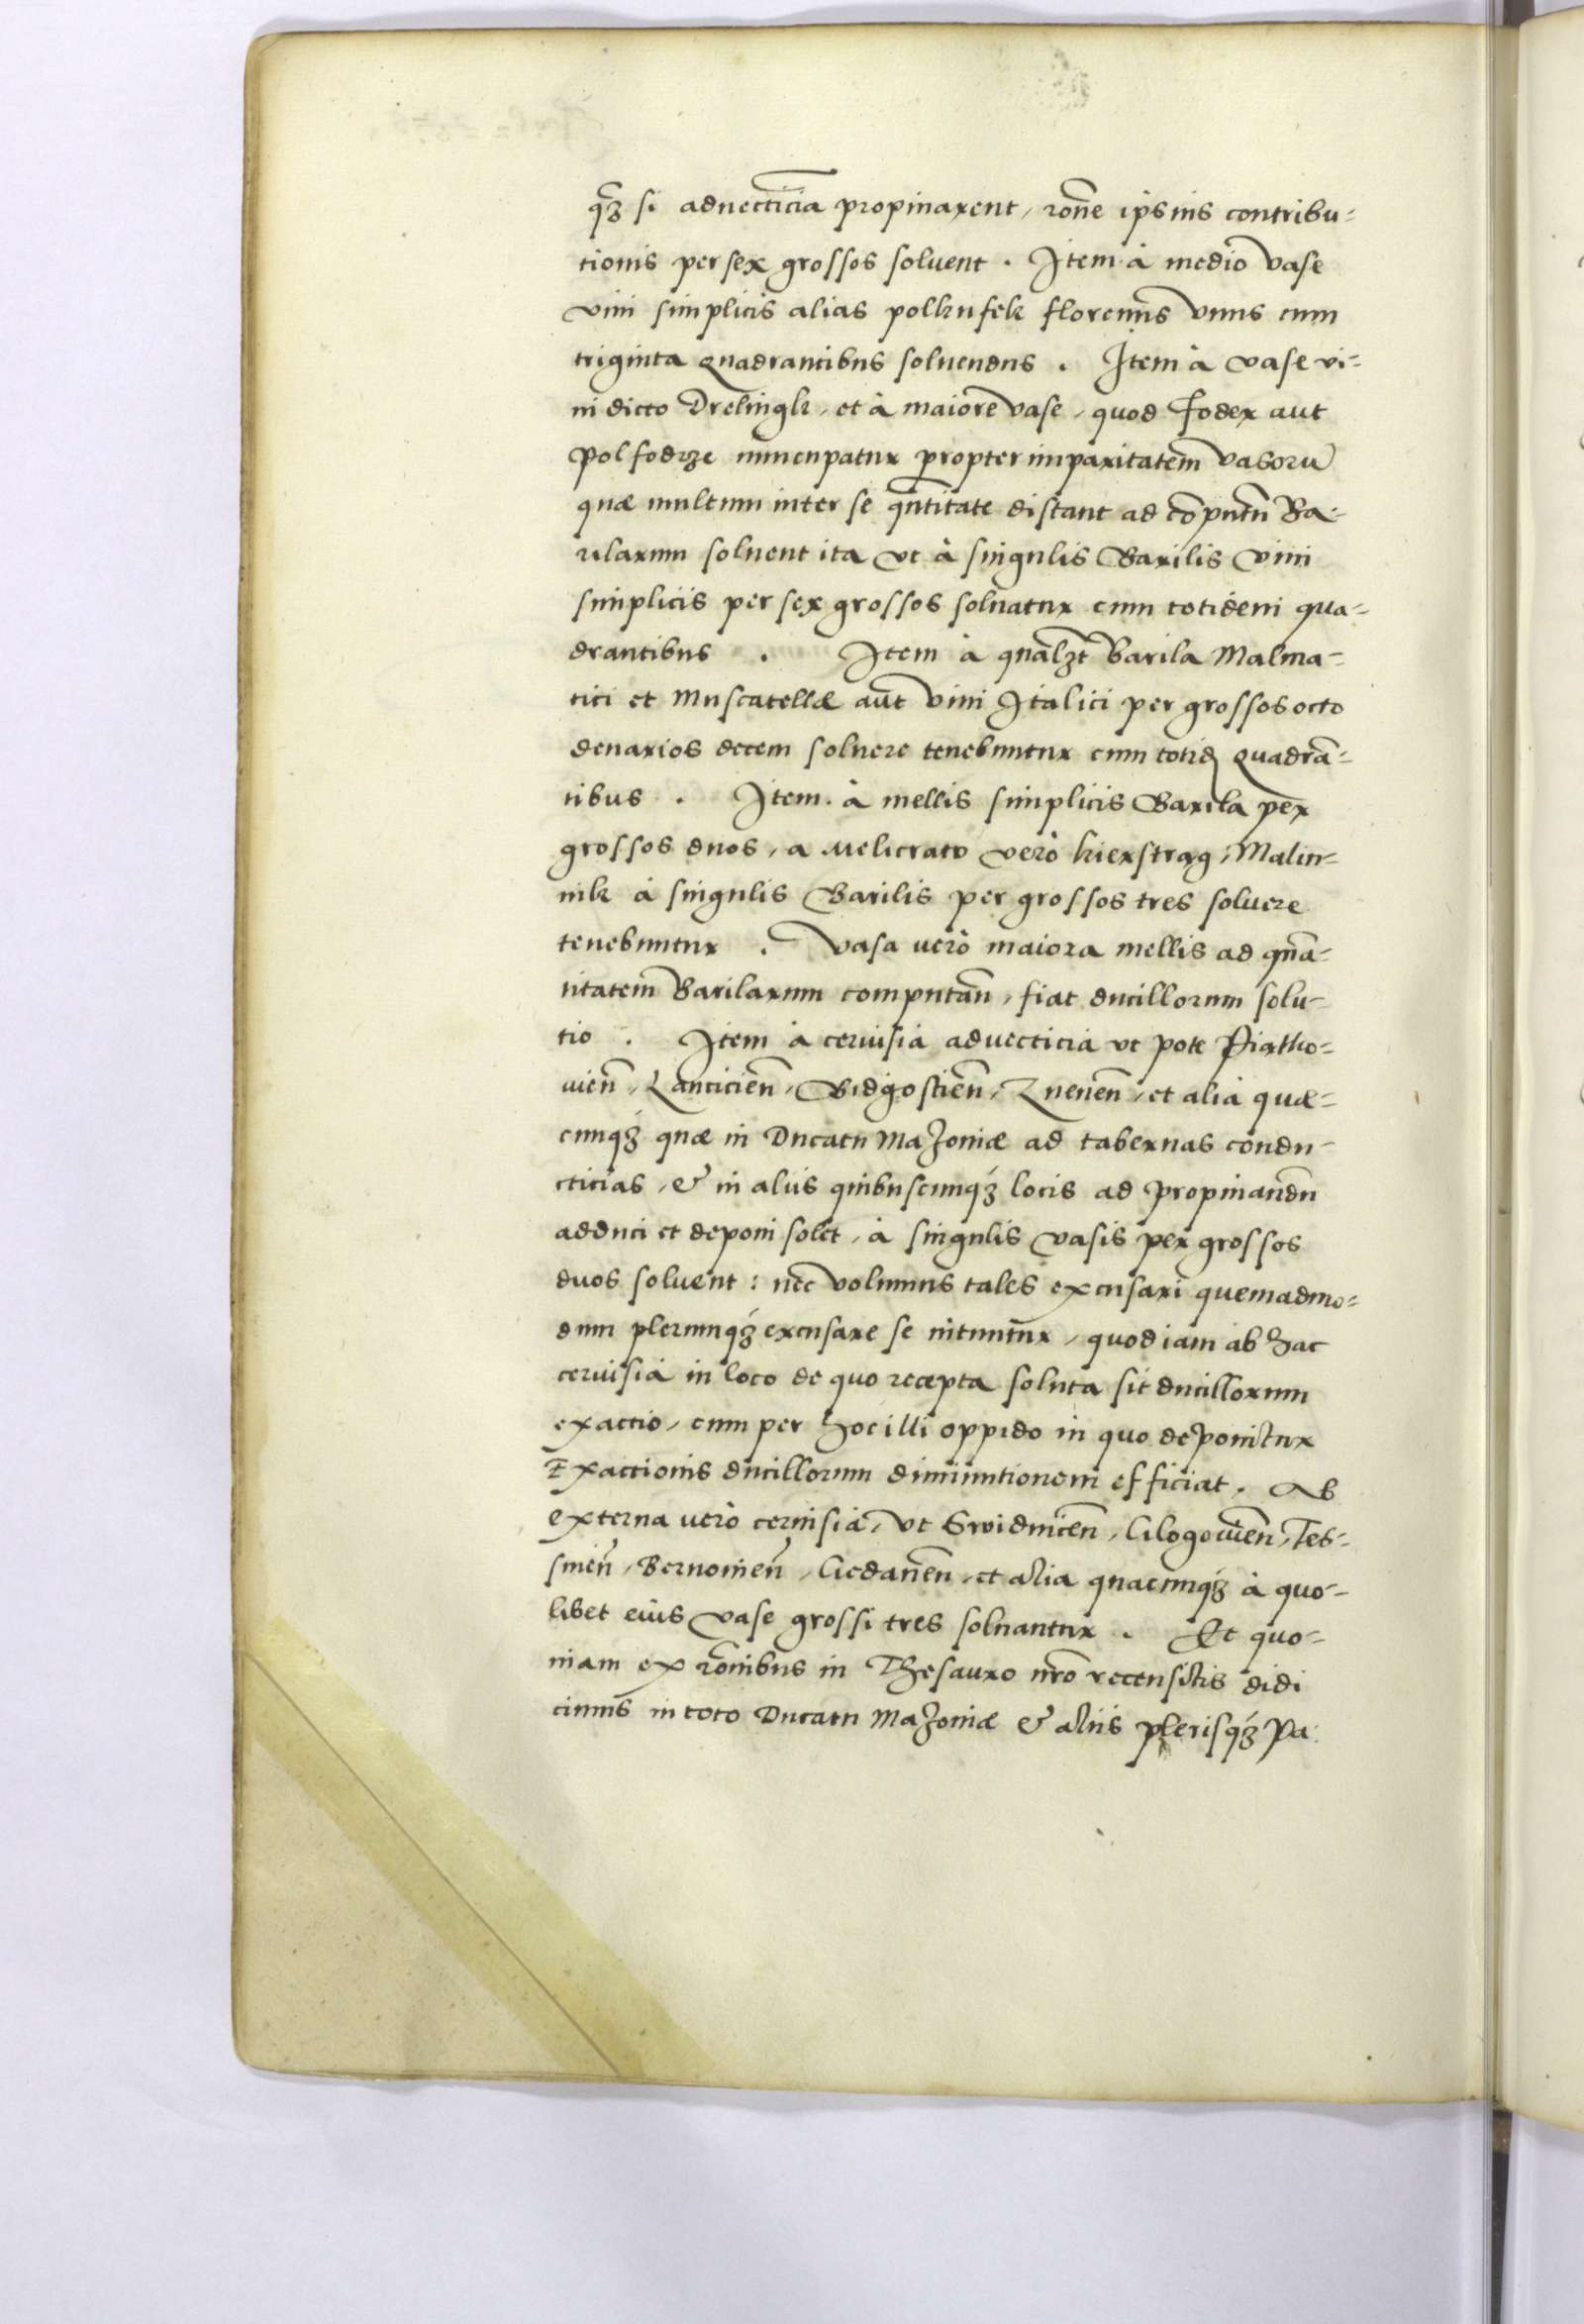 qꝫ si aduecticia propinarent, rõne ipsius contribu=
tionis per sex grossos soluent. Item à medio vase
vini simplicis alias polkufek florenus vnus cum
triginta quadrantibus soluendus. Item à vase vi=
ni dicto Drelingk, et à maiore vase, quod Foder aut
Polfodrze nuncupatur propter imparitatem vasorũ
quæ multum inter se qñtitate distant ad cõputũ Ba=
rilarum soluent ita vt à singulis Barilis vini
simplicis per sex grossos soluatur cum totidem qua=
drantibus. Item à qualꝫt Barila Malma=
tici et Muscatellæ aut vini Italici per grossos octo
denarios decem soluere tenebuntur cum totid quadrã=
tibus. Item à mellis simplicis Barila per
grossos duos, a Melicrato verò kierstrag, Malin=
nik à singulis Barilis per grossos tres soluere
tenebuntur. Vasa verò maiora mellis ad quã=
titatem Barilarum computañ, fiat ducillorum solu=
tio. Item à ceruisia aduecticia vt pote Piatko=
uieñ, Lancicieñ, Bidgostieñ, Zneneñ, et alia quæ=
cunqꝫ quæ in Ducatu Mazoniæ ad tabernas condu=
cticias, & in aliis quibuscunqꝫ locis ad propinandũ
adduci et deponi solet, à singulis vasis per grossos
duos soluent: nec volumus tales excusari quemadmo=
dum plerunqꝫ excusare se nituntur, quod iam ab hac
ceruisia in loco de quo recepta soluta sit ducillorum
exactio, cum per hoc illi oppido in quo deponitur
Exactionis ducillorum diminutionem efficiat. Ab
externa verò ceruisia, vt Swidniceñ, Glogouieñ, Tes=
sineñ, Bernouieñ, Gedaneñ, et alia quacunqꝫ à quo=
libet eius vase grossi tres soluantur. Et quo=
niam ex rõnibus in Thesauro nr̃o recensitis didi
cimus in toto Ducatu Mazoniæ & aliis plerisqꝫ Pa: